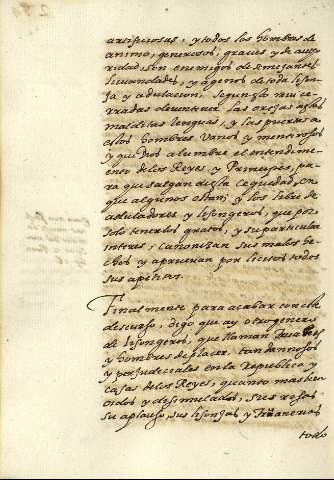 artificiosas, y todos los hombres de
animo, generosos, graues y de auto
ridad, son enemigos de semejantes
liuiandades, y agenos de toda lison
ja y adulacion. Segun lo qual cer
radas deuen tener las orejas a las
malditas lenguas, y las puertas a
estos hombres vanos y mentirosos
y que Dios alumbre el entendimi
ento de los Reyes y Principes, pa
ra que salgan desta ceguedad, en
que algunos estan, y los libre de
aduladores y lisongeros, que por
solo tenerlos gratos, y su particular
interes, canonizan sus malos he
chos y aprueuan por licitos todos
sus apetitos.
Finalmente para acabar con este
discurso, digo que ay otro genero
de lisongeros, que llaman Truanes
y hombres de plazer, tan dannosos
y perjudiciales en la republica y
casas de los Reyes, quanto mas bien
oidos y disimulados, sus risas
su aplauso, sus lisonjas y Truanerias
todo